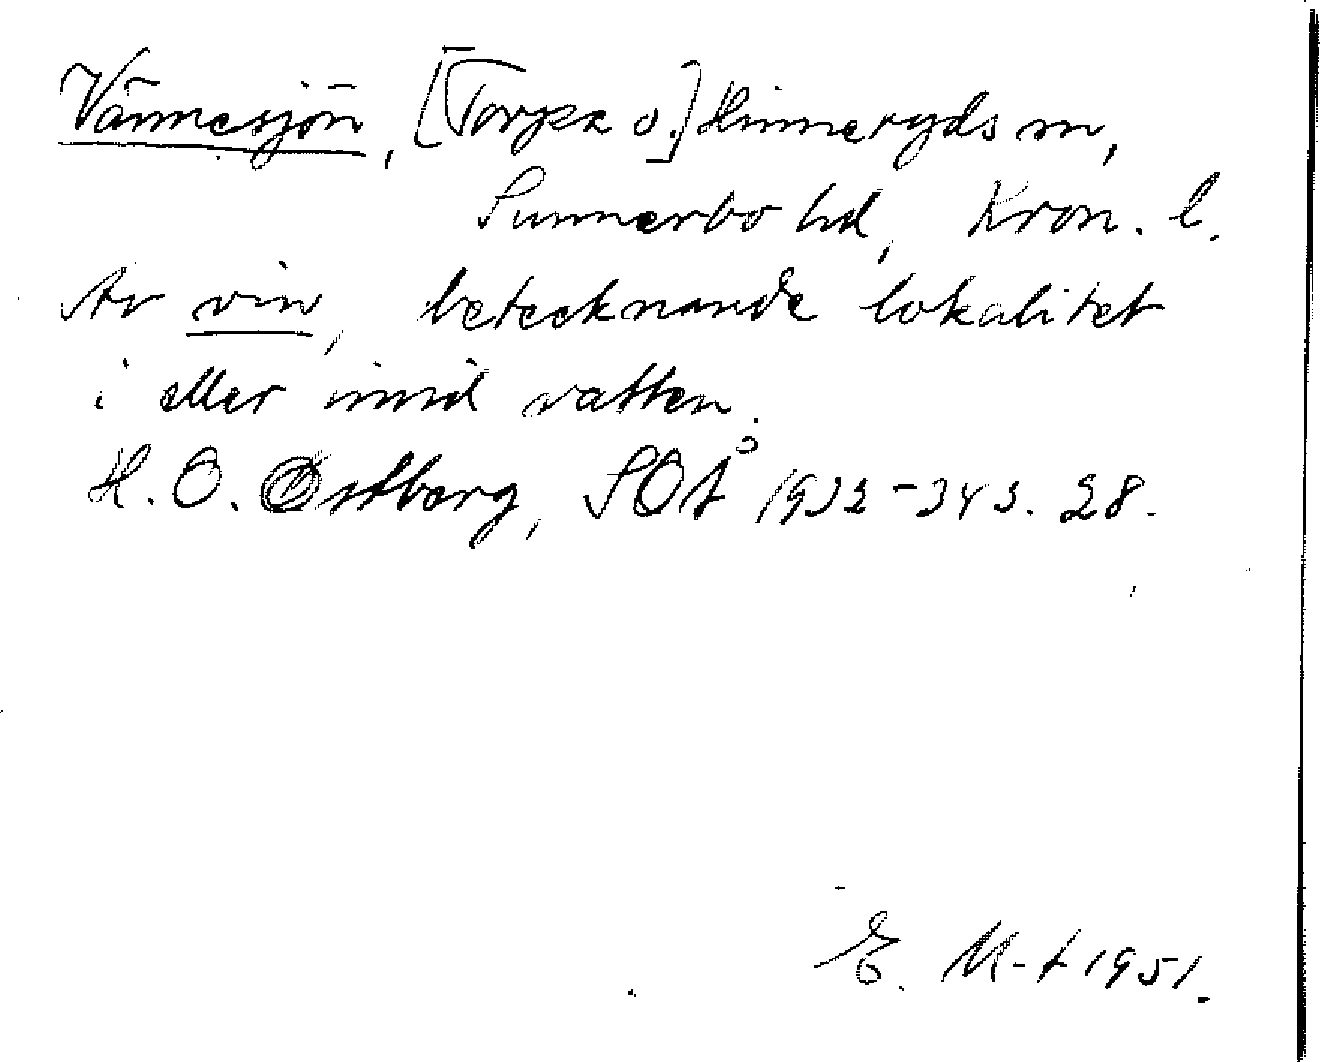 Vännesjön, [Torpa o.] Hinneryds sn,
Sunnerbo hd, Kron. l.
Av vin, betecknande lokalitet
i eller invid vatten.
H. O. Østberg, SOÅ 1932-34 s. 28.
E. M-t 1951.